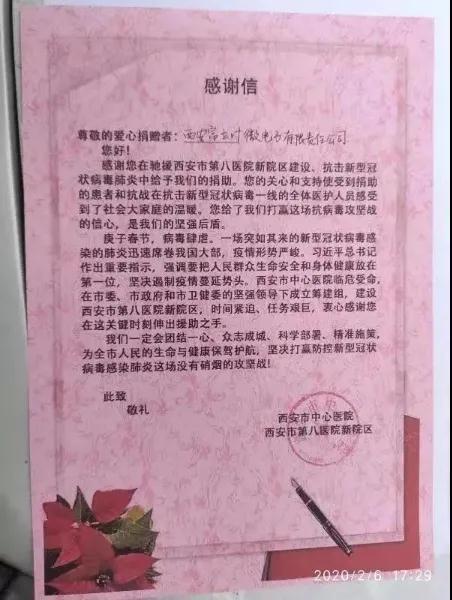 感谢信
尊敬的爱心捐赠者：西安富士时微电子有限责任公司
您好！
感谢您在驰援西安市第八医院新院区建设、抗击新型冠
状病毒肺炎中给予我们的捐助。您的关心和支持使受到捐助
的患者和抗战在抗击新型冠状病毒一线的全体医护人员感受
到了社会大家庭的温暖。您给了我们打赢这场抗病毒攻坚战
的信心，是我们的坚强后盾。
庚子春节，病毒肆虐。一场突如其来的新型冠状病毒感
染的肺炎迅速席卷我国大部，疫情形势严峻。习近平总书记
作出重要指示，强调要把人民群众生命安全和身体健康放在
第一位，坚决遏制疫情蔓延势头。西安市中心医院临危受命，
在市委、市政府和市卫健委的坚强领导下成立筹建组，建设
西安市第八医院新院区，时间紧迫、任务艰巨，衷心感谢您
在这关键时刻伸出援助之手。
我们一定会团结一心、众志成城、科学部署、精准施策，
为全市人民的生命与健康保驾护航，坚决打赢防控新型冠状
病毒感染肺炎这场没有硝烟的攻坚战！
此致
敬礼
西安市中心医院
西安市第八医院新院区
2020/2/6 17:29